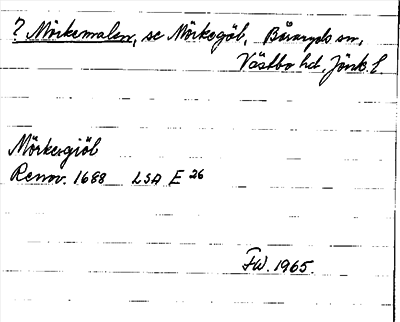 ? Mörkemalen, se Mörkegöl, Båraryds sn,
Västbo hd, Jönk. l.
Mörkegiöl
Renov. 1688 LSA E 26
FW. 1965.